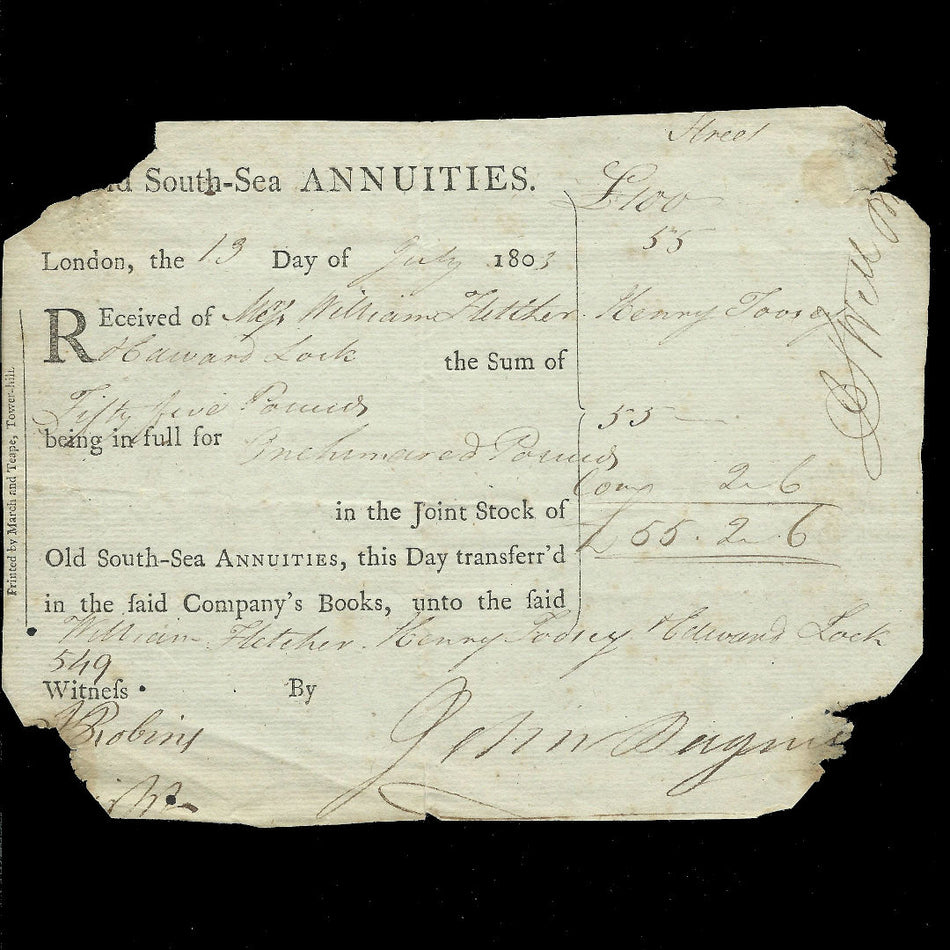 Street
Old South-Sea ANNUITIES.
£100
55
London, the 13 Day of July 1803
REceived of Mess William Fletcher. Henry Toosey
& Edward Lock the Sum of
Fifty five Pounds
55 —
being in full for One hundred Pounds
Comy 2 6
in the Joint Stock of
£ 55. 2. 6
Old South-Sea ANNUITIES, this Day transferr'd
in the ſaid Company's Books, unto the ſaid
William Fletcher. Henry Toosey & Edward Lock
549
Witneſs By
Robins
John
Printed by March and Teape, Tower-hill.